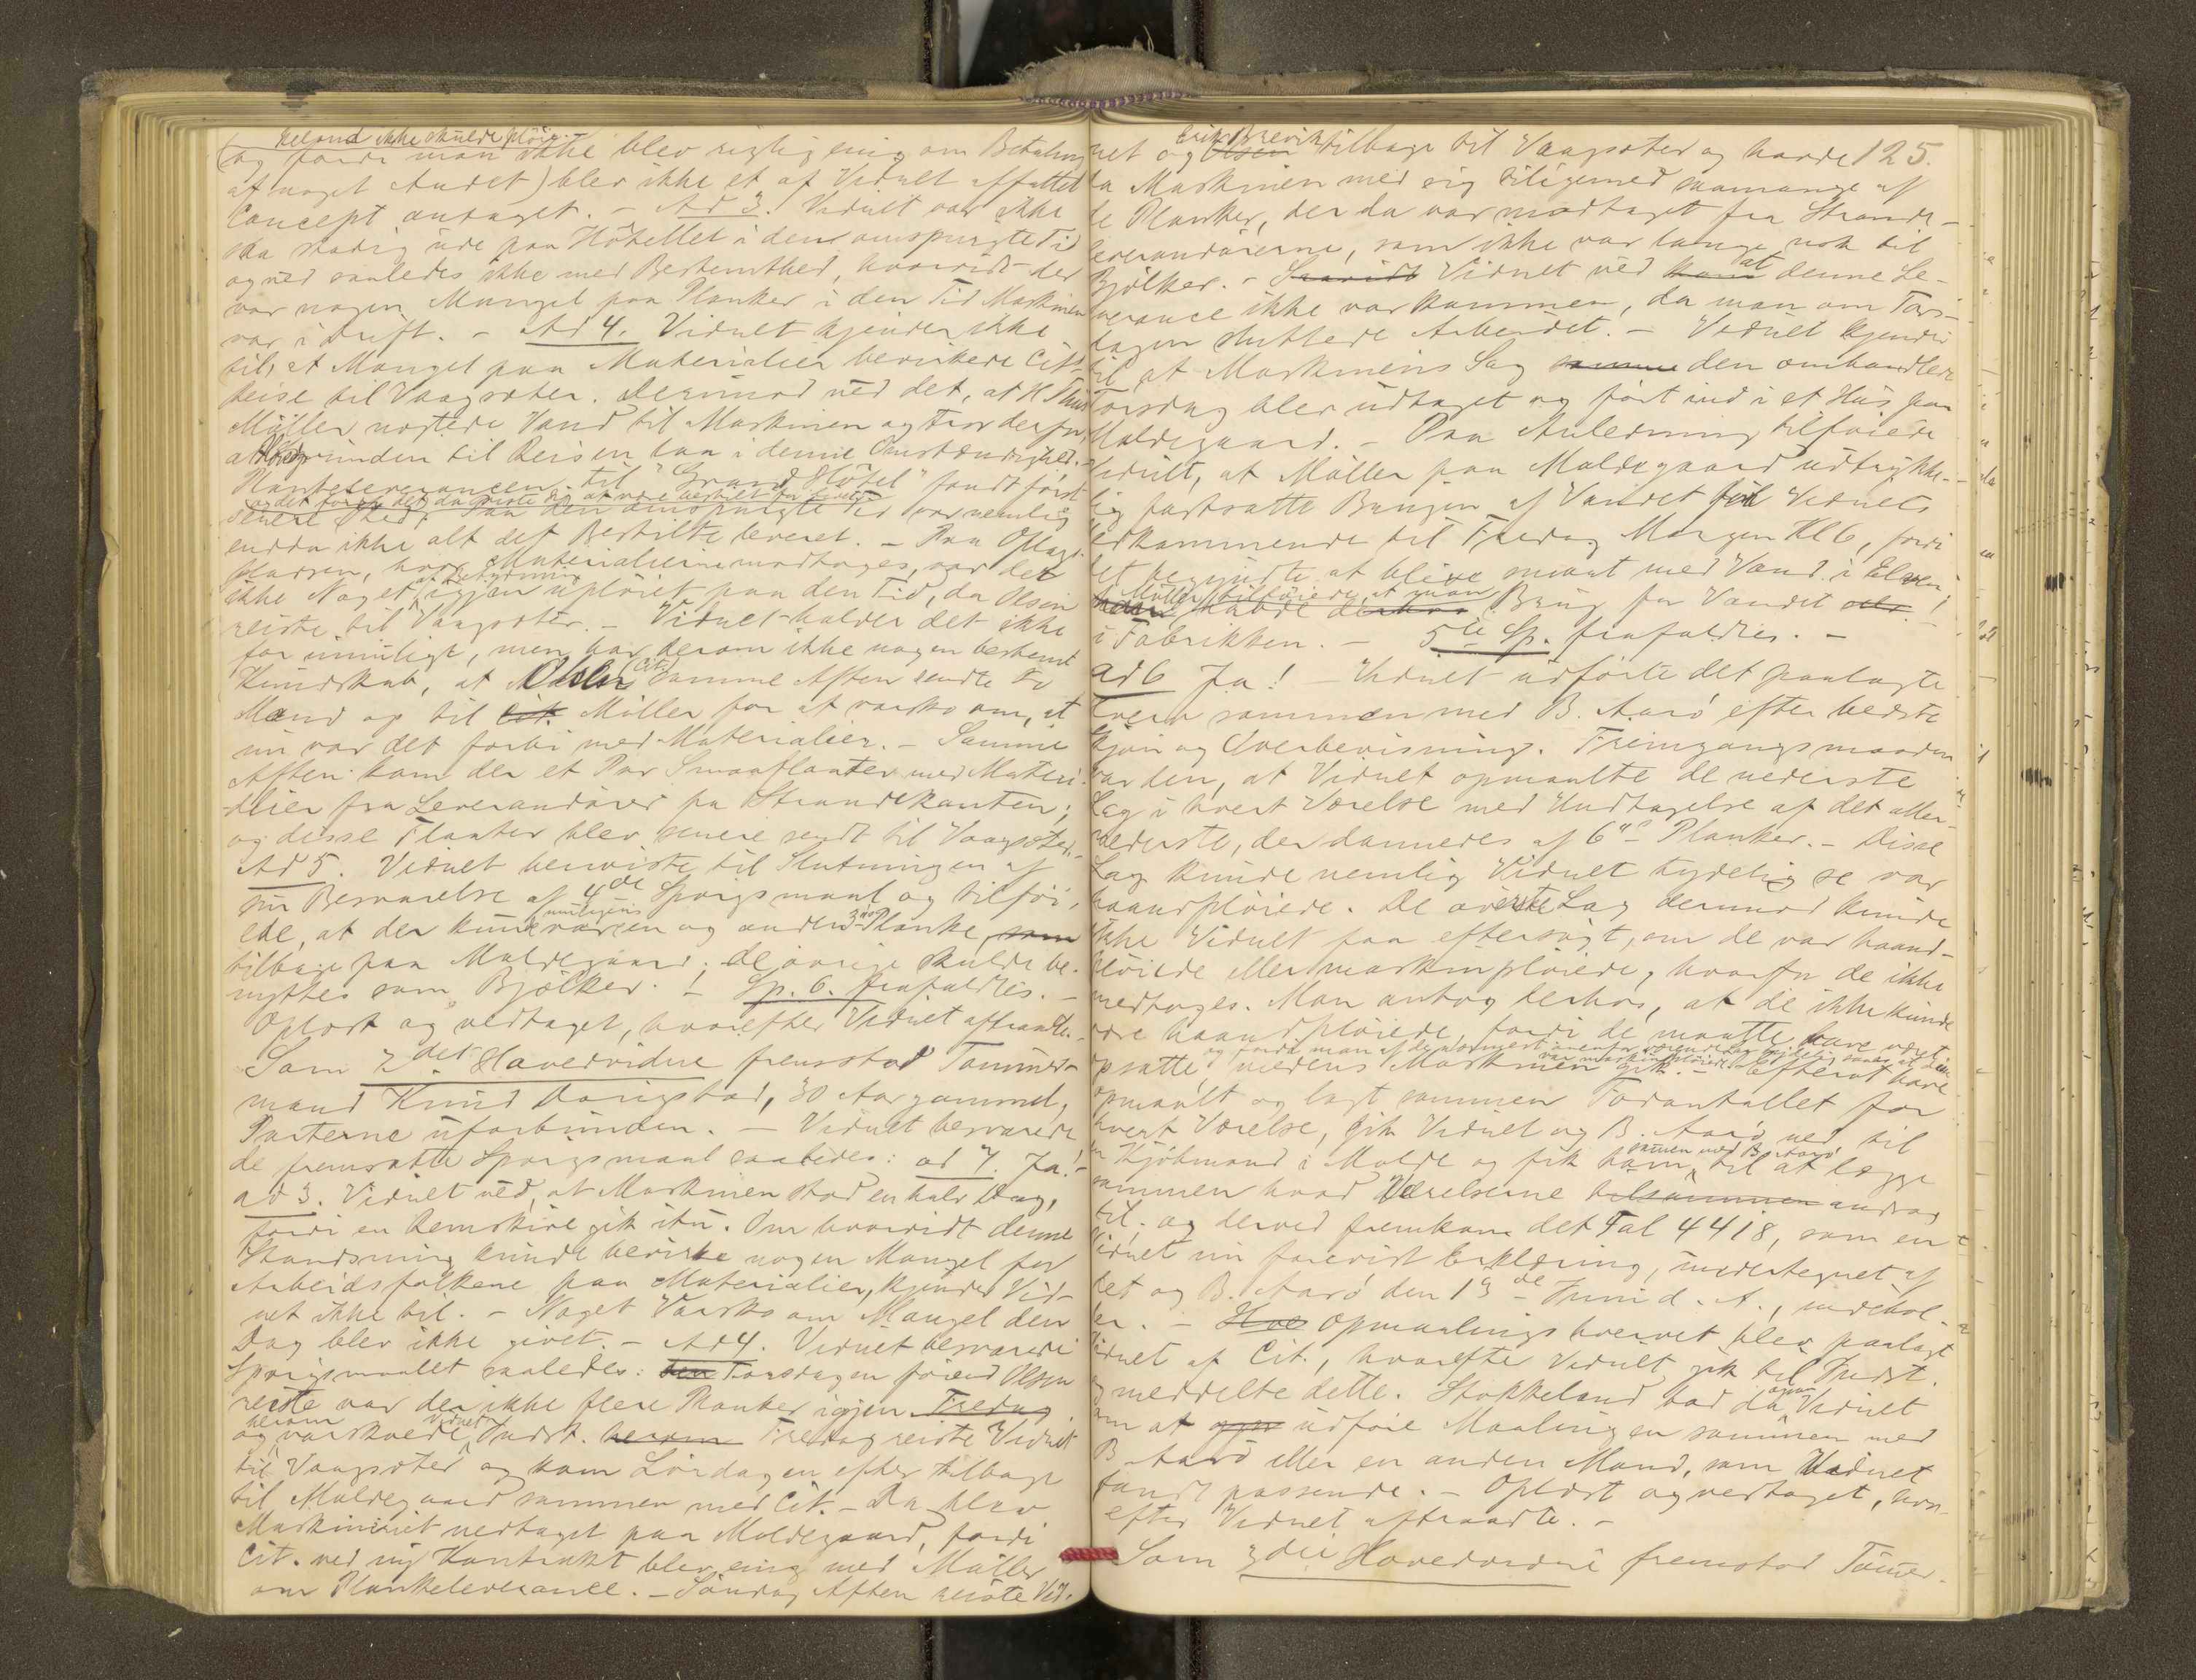 keland ikke skulde pløie
(og fordi man ikke blev rigtig enig om Betaling
af noget Andet) blev ikke et af Vidnet affattet
Concept antaget. – Ad 3. Vidnet var ikke
saa stadig ude paa Hôtellet i den omspurgte Tid
og ved saaledes ikke med Bestemthed, hvorvidt der
var nogen Mangel paa Planker i den Tid Maskinen
var i Drift. – Ad 4. Vidnet kjender ikke
til, at Mangel paa Materialier bevirkede Cit's
Reise til Vaagsøter. Derimod ved det, at H. Thiis
Møller nægtede Vand til Maskinen og tror derfor,
at Grunden til Reisen laa i denne Omstændighed.
Plankeleverancen til "Grand Hôtel" fandt først
og det foregik det da reiste sig at være bestilt for lidet
senere Sted. Paa den omspurgte Tid var nemlig
endda ikke alt det Bestilte leveret. – Paa Oplags-
pladsen, hvor Materialierne modtages, var det
ikke Noget af Betydning igjen upløiet paa den Tid, da Olsen
reiste til Vaagsøter. – Vidnet holder det ikke
for umuligt, men har derom ikke nogen bestemt
Kundskab, at Olsen (Cit.) samme Aften sendte to
Mænd op til Cit. Møller for at varsko om, at
nu var det forbi med Materialier. – Samme
Aften kom der et Par Smaaflaater med Materi-
alier fra Leverandører fra Strandekanten;
og disse Flaater blev senere sendt til Vaagsøter.
Ad 5. Vidnet henviste til Slutningen af
sin Besvarelse af 4de Spørgsmaal og tilføi-
ede, at der kunde muligens være en og anden 3" Planke, som
tilbage paa Moldegaard; de øvrige skulde be-
nyttes som Bjelker. – Sp. 6. frafaldtes. –
Oplæst og vedtaget, hvorefter Vidnet aftraadte.
Som 2det Hovedvidne fremstod Tømmer-
mand Knud Haugstad, 30 Aar gammel,
Parterne uforbunden. – Vidnet besvarede
de fremsatte Spørgsmaal saaledes: ad 1. Ja! –
ad 3. Vidnet ved, at Maskinen stod en halv Dag,
fordi en Remskive gik itu. Om hvorvidt denne
Standsning kunde bevirke nogen Mangel for
Arbeidsfolkene paa Materialier, kjender Vid-
net ikke til. – Noget Varsko om Mangel den
Dag blev ikke givet. – Ad 4. Vidnet besvarede
Spørgsmaalet saaledes: den Torsdagen førend Olsen
reiste var der ikke flere Planker igjen Fredag
og varskoede herom Vidnet Indst. herom Fredag reiste Vidnet
til Vaagsøter og kom Lørdagen efter tilbage
til Moldegaard sammen med Cit. – Da blev
Maskineriet nedtaget paa Moldegaard, fordi
Cit. ved ny Kontrakt blev enig med Møller
om Plankeleverance. – Søndag Aften reiste Vid-
net og Olsen Erik Brevik tilbage til Vaagsøter og havde 125.
da Maskinen med sig tilligemed saamange af
de Planker, der da var modtaget fra Strande-
leverandørerne, som ikke var lange nok til
Bjelker. – Saavidt Vidnet ved kom at denne Le-
verance ikke var kommen, da man om Tors-
dagen sluttede Arbeidet. – Vidnet kjender
til, at Maskinens Sag samme den omhandlede
Torsdag blev udtaget og ført ind i et Hus paa
Moldegaard. – Paa Anledning tilføiede
Vidnet, at Møller paa Moldegaard udtrykke-
lig fastsatte Brugen af Vandet for Vidnets
Vedkommende til Fredag Morgen Kl 6, fordi
det begyndte at blive smaat med Vand i Elven;
Møller tilføiede, at man havde Brug for Vandet
i Fabrikken. – 5te Sp. frafaldtes. –
ad 6 Ja! – Vidnet udførte det paalagte
Hverv sammen med B. Aarø efter bedste
Skjøn og Overbevisning. Fremgangsmaaden
var den, at Vidnet opmaalte de nederste
Lag i hvert Værelse med Undtagelse af det aller-
nederste, der dannedes af 6" Planker. – Disse
Lag kunde nemlig Vidnet tydelig se var
haandpløiede. De øverste Lag derimod kunde
ikke Vidnet faa eftersøgt, om de var haand-
pløiede eller maskinpløiede, hvorfor de ikke
medtoges. Man antog derhos, at de ikke kunde
være haandpløiede, fordi de maatte have været
og fordi man af de nærmest ovenfor værende Lag tydelig saa, at disse
opsatte medens Maskinen gik. var maskinpløiede – Efterat have
opmaalt og lagt sammen Fodantallet for
hvert Værelse, gik Vidnet og B. Aarø ned til
en Kjøbmand i Molde og fik ham sammen med B. Aarø til at lægge
sammen hvad Værelserne tilsammen androg
til, og derved fremkom det Tal 4418, som en
Vidnet nu forevist Erklæring, undertegnet af
det og B. Aarø den 19de Juni d. A., indehol-
der. – Hve Opmaalingshvervet blev paalagt
Vidnet af Cit., hvorefter Vidnet gik til Indst.
og meddelte dette. Stokkeland bad da ogsaa Vidnet
om at udføre Maalingen sammen med
B. Aarø eller en anden Mand, som Vidnet
fandt passende. – Oplæst og vedtaget, hvor-
efter Vidnet aftraadte. –
Som 3die Hovedvidne fremstod Tømmer-